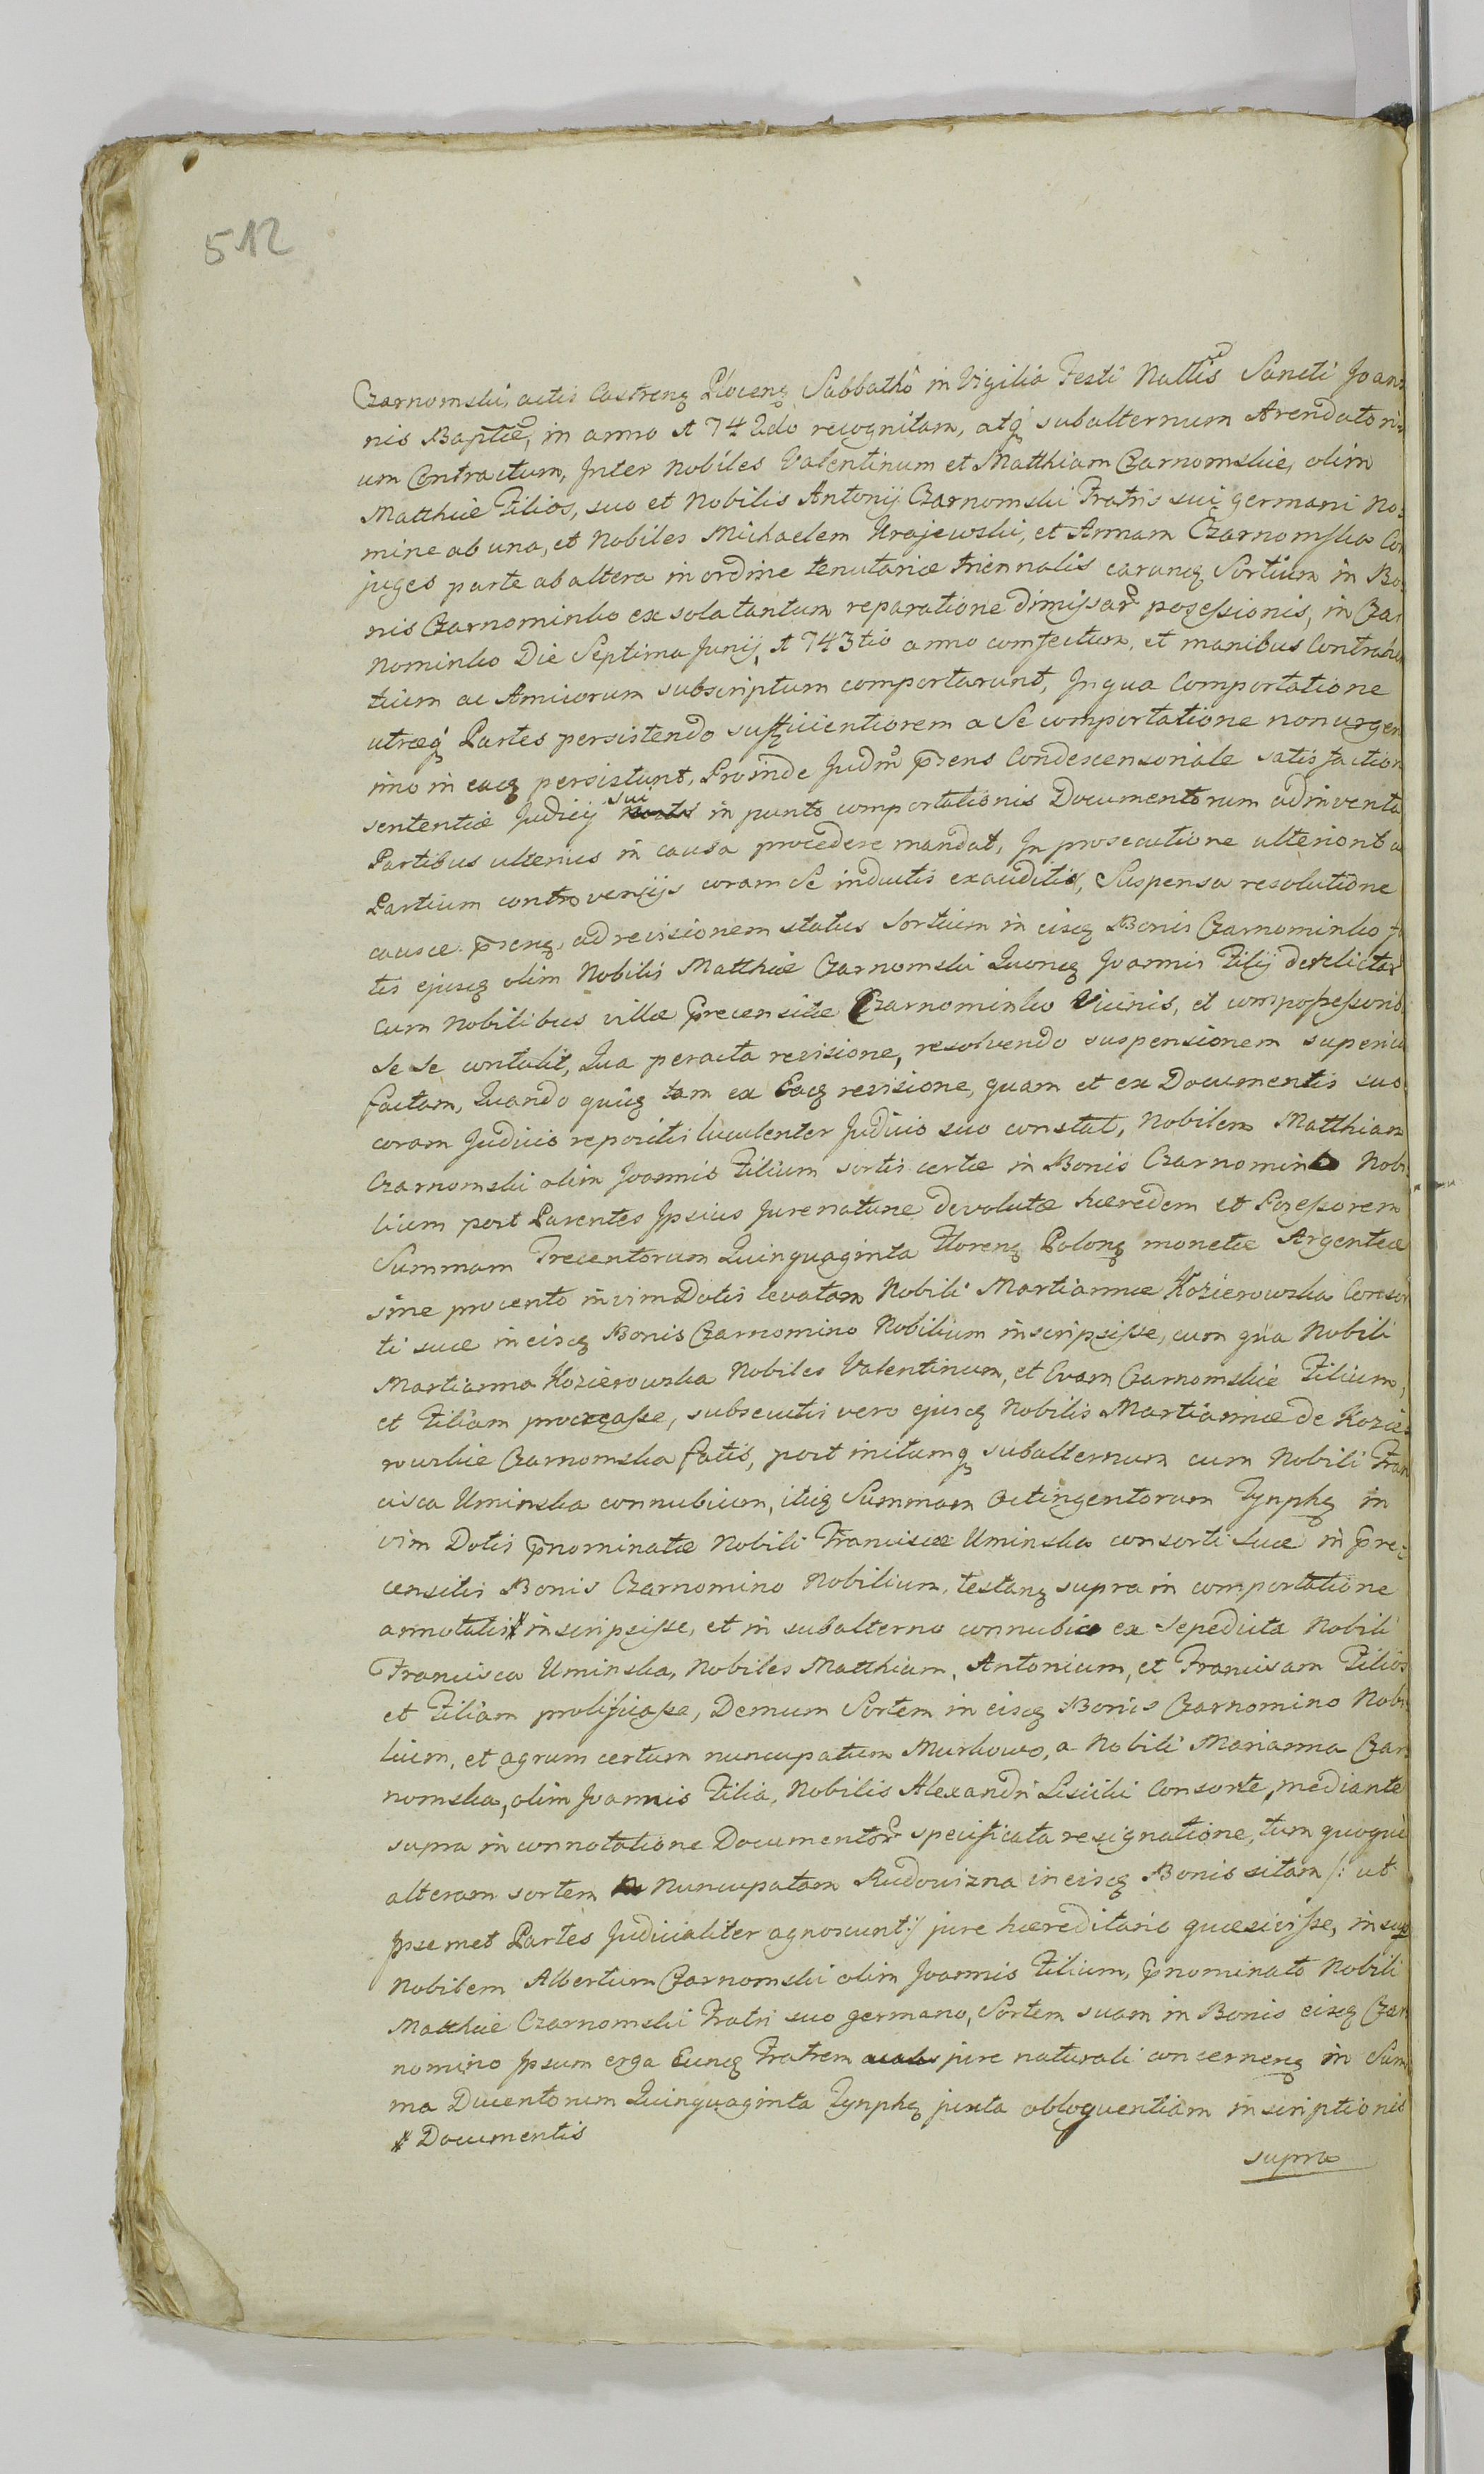 512
Czarnomski, actis Castrenq Plocenq Sabbatho in Vigilia Festi Nattis Sancti Joan:
nis Baptæ, in anno 1742do recognitam, atq subalternum Arendatori
um Contractum, Inter Nobiles Valentinum et Matthiam Czarnomskie, olim
Matthiæ Filios, suo et Nobilis Antonij Czarnomski Fratris sui germani No:
mine ab una, et Nobiles Michaelem Krajewski, et Annam Czarnomska Con
juges parte ab altera in ordine tenutariæ triennalis earunq Sortium in Bo:
nis Czarnominko ex sola tantum reparatione dimissar possessionis, in Czar
nominko Die Septima Junij 1743tio anno confectum, et manibus Contrahen
tium ac Amicorum subscriptum comportarunt, In qua Comportatione
utræq Partes persistendo sufficientiorem a Se comportatione non urgen
imo in eaq persistunt, Proinde Judm præns Condescensoriale satisfaction
sententiæ Judicij sui in puncto comportationis Documentorum adinventa
Partibus ulterius in causa procedere mandat, In prosecutione ulteriorib a
Partium controversijs coram Se inductis exauditis, Suspensa resolutione
causæ prænq, ad revisionem status Sortium in eisq Bonis Czarnominko
tis ejusq olim Nobilis Matthiæ Czarnomski Quonq Joannis Filij derelictar
cum Nobilibus villæ præcensitæ Czarnominko Vicinis, et compossessorib
se se contulit, Qua peracta revisione, resolvendo suspensionem superius
factam, Quando quiq tam ex Eaq revisione, quam et ex Documentis suo
coram Judicio repositis luculenter Judicio suo constat, Nobilem Matthiam
Czarnomski olim Joannis Filium sortis certæ in Bonis Czarnomino Nobi
lium post Parentes Ipsius Jure naturæ devolutæ hæredem et Possessorem
Summam Trecentorum Quinquaginta Florenq Polonq monetæ Argenteæ
sine procento in vim Dotis levatam Nobili Martiannæ Kozierowska Consor
ti suæ in eisq Bonis Czarnomino Nobilium inscripsisse, cum qua Nobili
Martianna Kozierowska Nobiles Valentinum, et Evam Czarnomskie Filium,
et Filiam procreasse, subsecutis vero ejusq Nobilis Martiannæ de Kozie
rowskie Czarnomska fatis, post initumq subalternum cum Nobili Fran
cisca Uminska connubium, itiq Summam Octingentorum Tynphq in
vim Dotis prænominatæ Nobili Franciscæ Uminska consorti suæ in præ:
censitis Bonis Czarnomino Nobilium, testanq supra in comportatione
annotatis # inscripsisse, et in subalterno connubio ex sepedicta Nobili
Francisca Uminska, Nobiles Matthiam, Antonium, et Franciscam Filios
et Filiam prolificasse, Demum Sortem in eisq Bonis Czarnomino Nobi
lium, et agrum certum nuncupatum Murkowo, a Nobili Marianna Czar
nomska, olim Joannis Filia, Nobilis Alexandri Lisicki Consorte, mediante
supra in connotatione Documentor specificata resignatione, tum quoque
alteram sortem Nuncupatam Rudowizna in eisq Bonis sitam /: ut
Ipsemet Partes Judicialiter agnoscunt :/ jure hæreditario quæsivisse, insup
Nobilem Albertum Czarnomski olim Joannis Filium, prænominato Nobili
Matthiæ Czarnomski Fratri suo germano, Sortem suam in Bonis eisq Czar
nomino Ipsum erga Eunq Fratrem jure naturali concernenq in Sum
ma Ducentorum Quinquaginta Tynphq juxta obloquentiam inscriptionis
# Documentis
supra